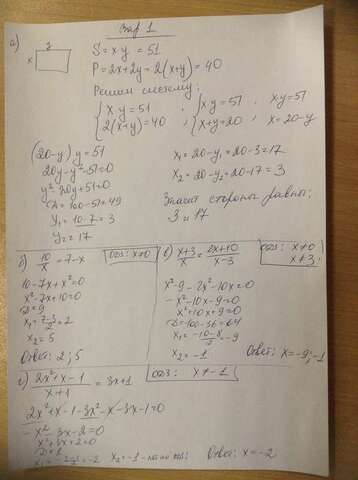 Вар 1
а)
y
x
S = xy = 51
P = 2x+2y = 2(x+y) = 40
Решим систему:
{ xy = 51 ; { xy = 51 , xy = 51
{ 2(x+y) = 40 { x+y=20 , x = 20-y
(20-y) y = 51
20y - y² - 51 = 0
y² - 20y + 51 = 0
D = 100 - 51 = 49
y₁ = 10-7 = 3
y₂ = 17
x₁ = 20-y₁ = 20-3 = 17
x₂ = 20-y₂ = 20-17 = 3
Значит стороны равны:
3 и 17
б) 10/x = 7-x
ОДЗ: x≠0
10-7x+x²=0
x²-7x+10=0
D=9
x₁ = (7-3)/2 = 2
x₂ = 5
Ответ: 2; 5
в) (x+3)/x = (2x+10)/(x-3)
ОДЗ: x≠0
x≠3
x²-9-2x²-10x=0
-x²-10x-9=0
x²+10x+9=0
D=100-36=64
x₁ = (-10-8)/2 = -9
x₂ = -1
Ответ: x=-9; -1
г) (2x²+x-1)/(x+1) = 3x+1
ОДЗ: x≠-1
2x²+x-1-3x²-x-3x-1=0
-x²-3x-2=0
x²+3x+2=0
D=1
x₁ = (-3-1)/2 = -2 x₂=-1 - ОДЗ:
Ответ: x=-2